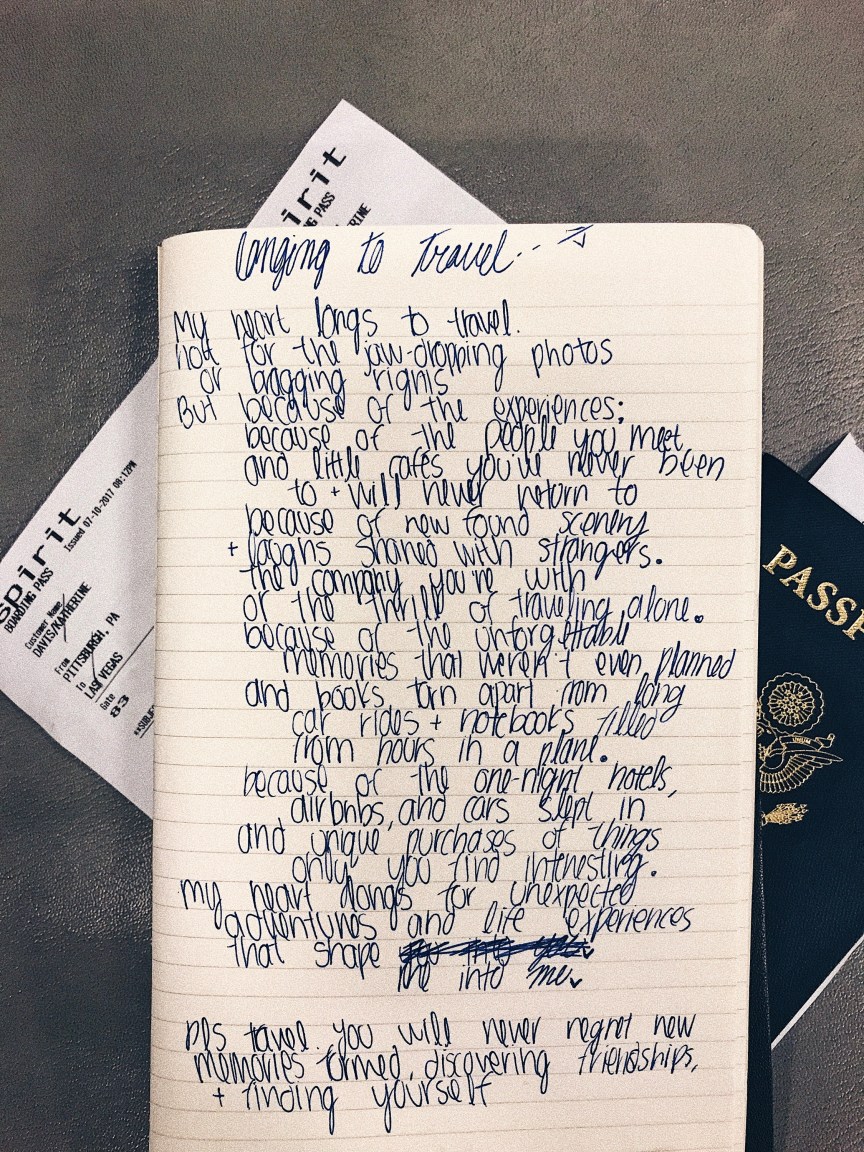 spirit
BOARDING PASS
longing to travel...
My heart longs to travel.
not for the jaw-dropping photos
or bragging rights
But because of the experiences;
because of the people you meet
and little cafes you've never been
to + will never return to
because of new found scenery
+ laughs shared with strangers.
the company you're with
or the thrill of traveling alone.
because of the unforgettable
memories that weren't even planned
and books torn apart from long
car rides + notebooks filled
from hours in a plane.
because of the one-night hotels,
airbnbs, and cars slept in
and unique purchases of things
only you find interesting.
my heart longs for unexpected
adventures and life experiences
that shape
me into me
pls travel. you will never regret new
memories formed, discovering friendships,
+ finding yourself
spirit
BOARDING PASS
Issued 07-10-2017 08:12PM
Customer Name
DAVIS/KATHERINE
From
PITTSBURGH, PA
To
LAS VEGAS
Gate
83
PASSP